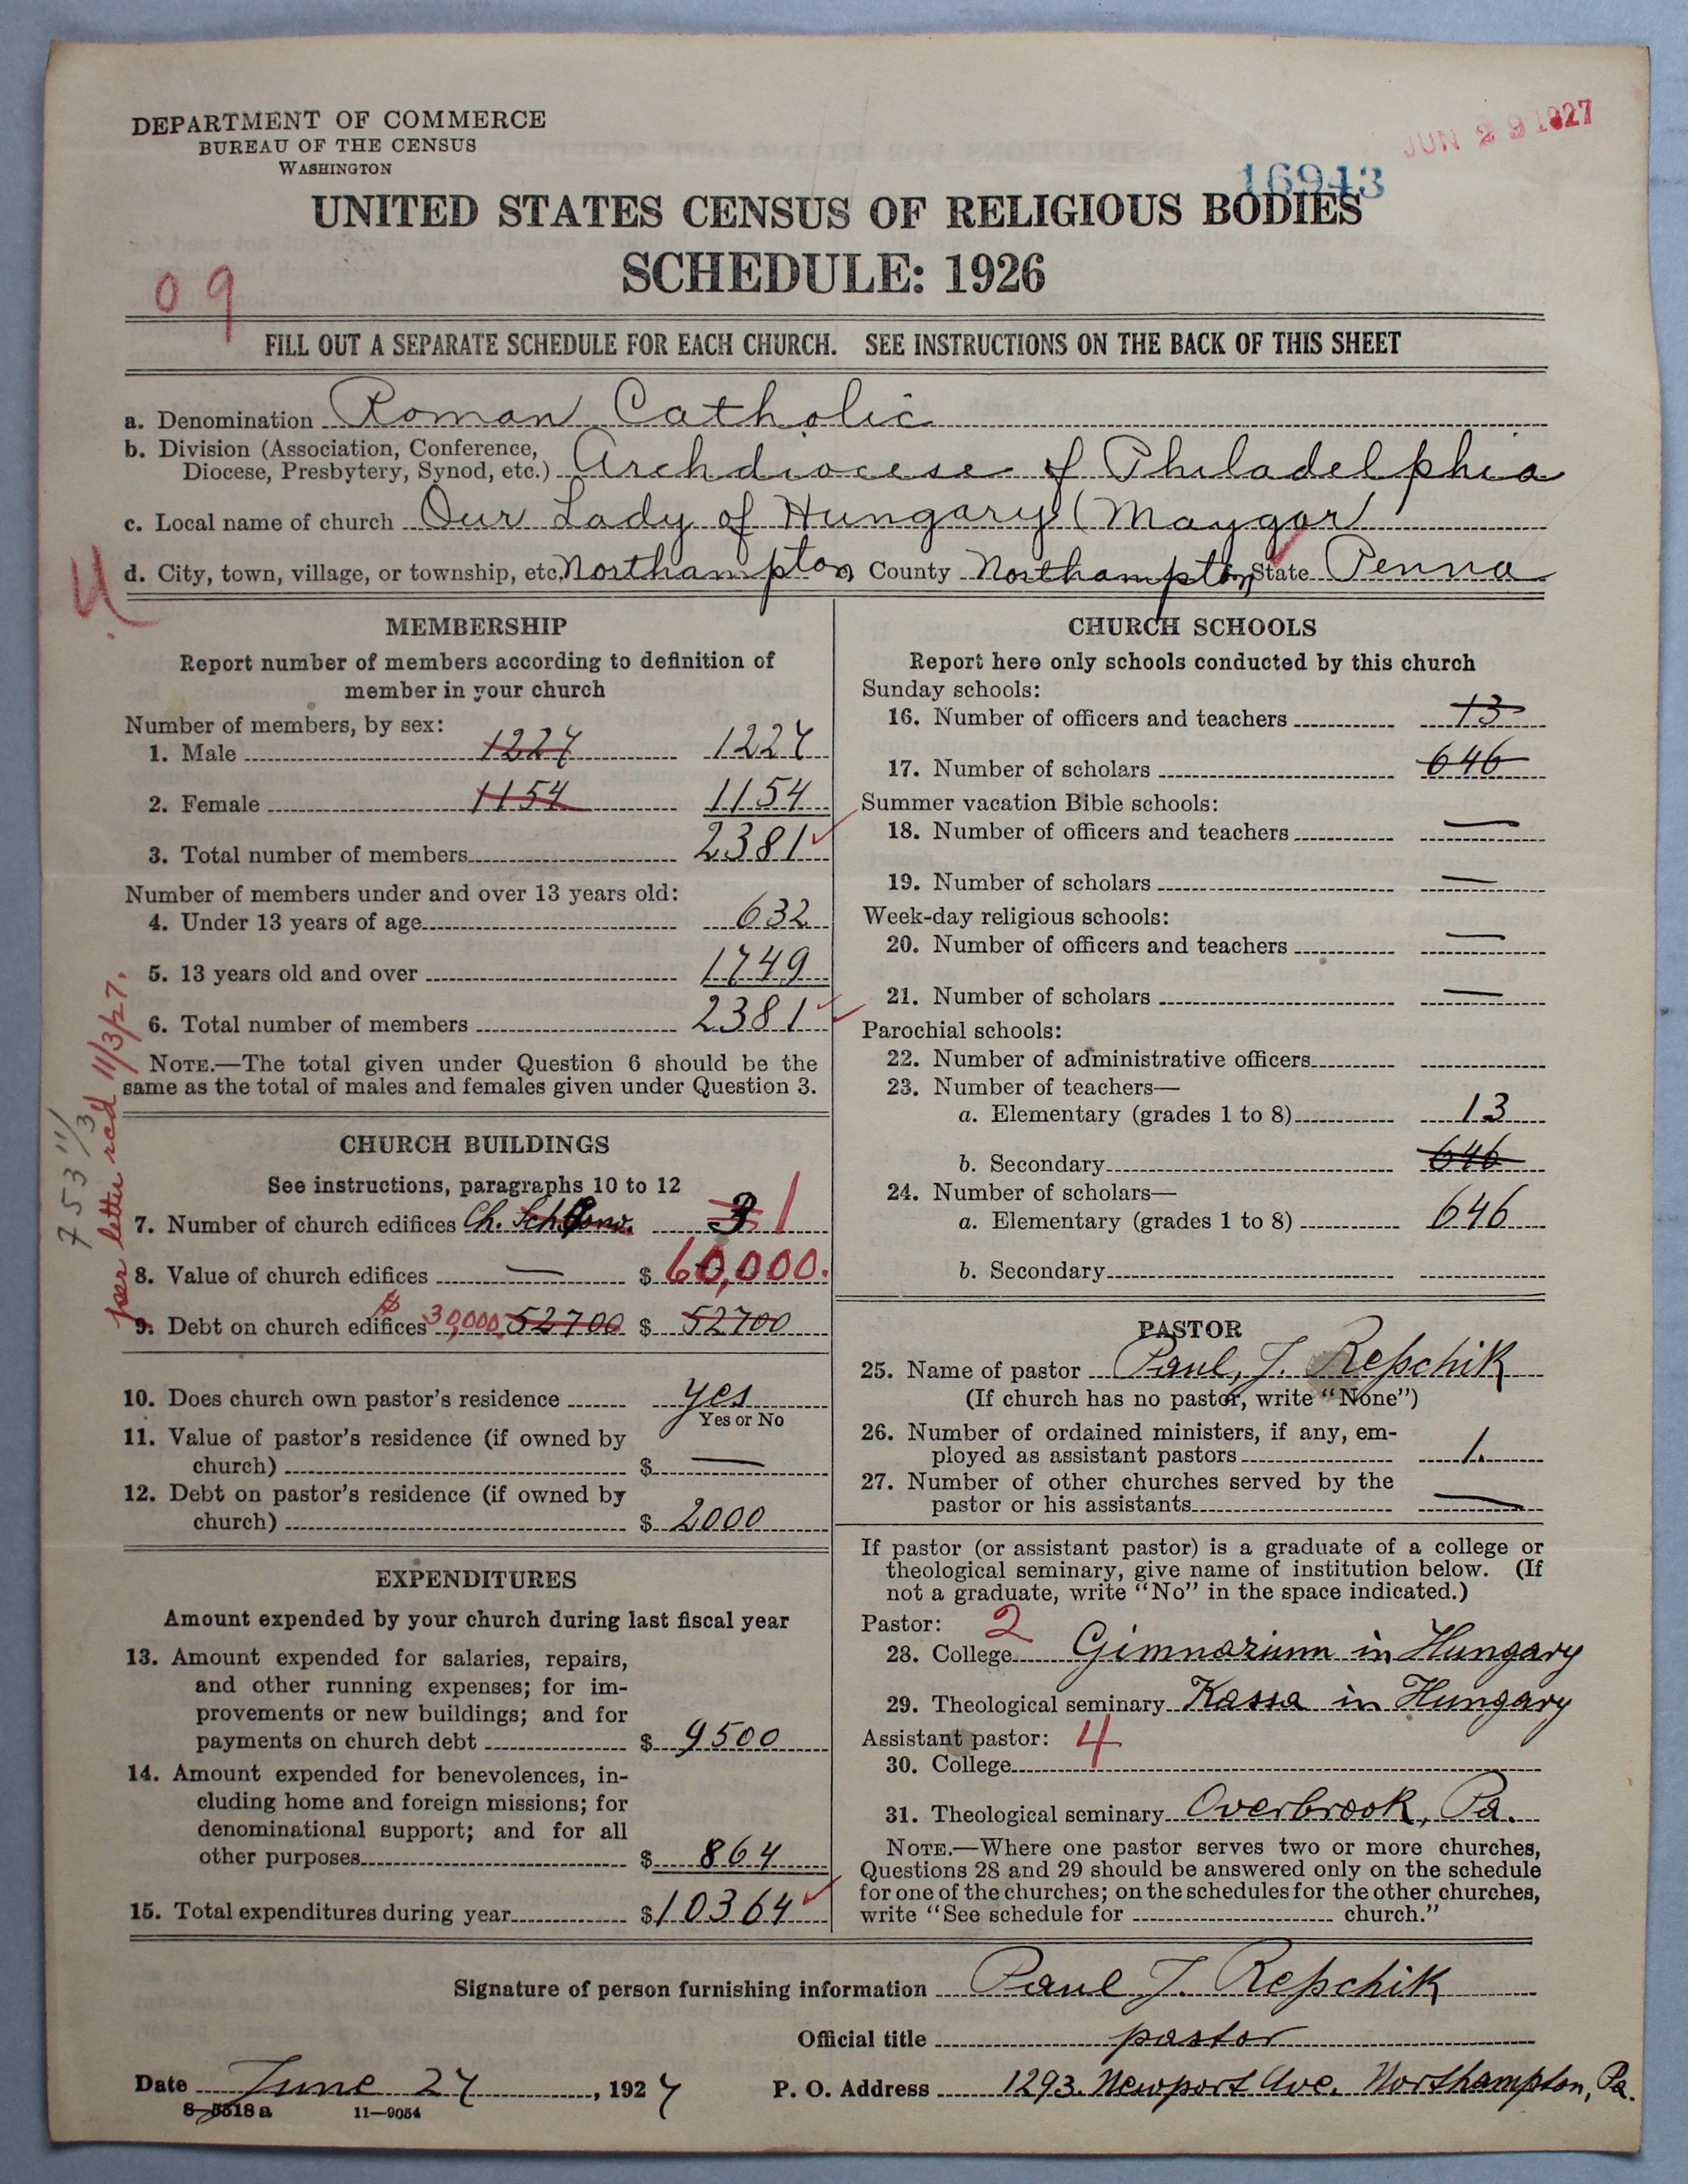 DEPARTMENT OF COMMERCE
BUREAU OF THE CENSUS
WASHINGTON
JUN 29 1927
16943
UNITED STATES CENSUS OF RELIGIOUS BODIES
SCHEDULE: 1926
09
FILL OUT A SEPARATE SCHEDULE FOR EACH CHURCH. SEE INSTRUCTIONS ON THE BACK OF THIS SHEET
a. Denomination Roman Catholic
b. Division (Association, Conference,
Diocese, Presbytery, Synod, etc.) Archdiocese of Philadelphia
c. Local name of church Our Lady of Hungary (Maygar)
d. City, town, village, or township, etc. Northampton County Northampton State Penna
MEMBERSHIP
Report number of members according to definition of
member in your church
Number of members, by sex:
1. Male 1227 1227
2. Female 1154 1154
3. Total number of members 2381
Number of members under and over 13 years old:
4. Under 13 years of age 632
5. 13 years old and over 1749
6. Total number of members 2381
NOTE.—The total given under Question 6 should be the
same as the total of males and females given under Question 3.
753 11/3
per letter rcd 11/3/27.
CHURCH BUILDINGS
See instructions, paragraphs 10 to 12
7. Number of church edifices Ch. Sch. 3 1
8. Value of church edifices — $ 60,000.
9. Debt on church edifices $30,000. 52700 $ 52700
10. Does church own pastor's residence yes
Yes or No
11. Value of pastor's residence (if owned by
church) $ —
12. Debt on pastor's residence (if owned by
church) $ 2000
EXPENDITURES
Amount expended by your church during last fiscal year
13. Amount expended for salaries, repairs,
and other running expenses; for im-
provements or new buildings; and for
payments on church debt $ 9500
14. Amount expended for benevolences, in-
cluding home and foreign missions; for
denominational support; and for all
other purposes $ 864
15. Total expenditures during year $ 10364
CHURCH SCHOOLS
Report here only schools conducted by this church
Sunday schools:
16. Number of officers and teachers 13
17. Number of scholars 646
Summer vacation Bible schools:
18. Number of officers and teachers —
19. Number of scholars —
Week-day religious schools:
20. Number of officers and teachers —
21. Number of scholars —
Parochial schools:
22. Number of administrative officers
23. Number of teachers—
a. Elementary (grades 1 to 8) 13
b. Secondary 646
24. Number of scholars—
a. Elementary (grades 1 to 8) 646
b. Secondary
PASTOR
25. Name of pastor Paul, J. Repchik
(If church has no pastor, write "None")
26. Number of ordained ministers, if any, em-
ployed as assistant pastors 1.
27. Number of other churches served by the
pastor or his assistants —
If pastor (or assistant pastor) is a graduate of a college or
theological seminary, give name of institution below. (If
not a graduate, write "No" in the space indicated.)
Pastor: 2
28. College Gimnazium in Hungary
29. Theological seminary Kassa in Hungary
Assistant pastor: 4
30. College
31. Theological seminary Overbrook, Pa.
NOTE.—Where one pastor serves two or more churches,
Questions 28 and 29 should be answered only on the schedule
for one of the churches; on the schedules for the other churches,
write "See schedule for church."
Signature of person furnishing information Paul J. Repchik
Official title pastor
Date June 27, 1927 P. O. Address 1293. Newport Ave. Northampton, Pa.
8-5318a 11-9054